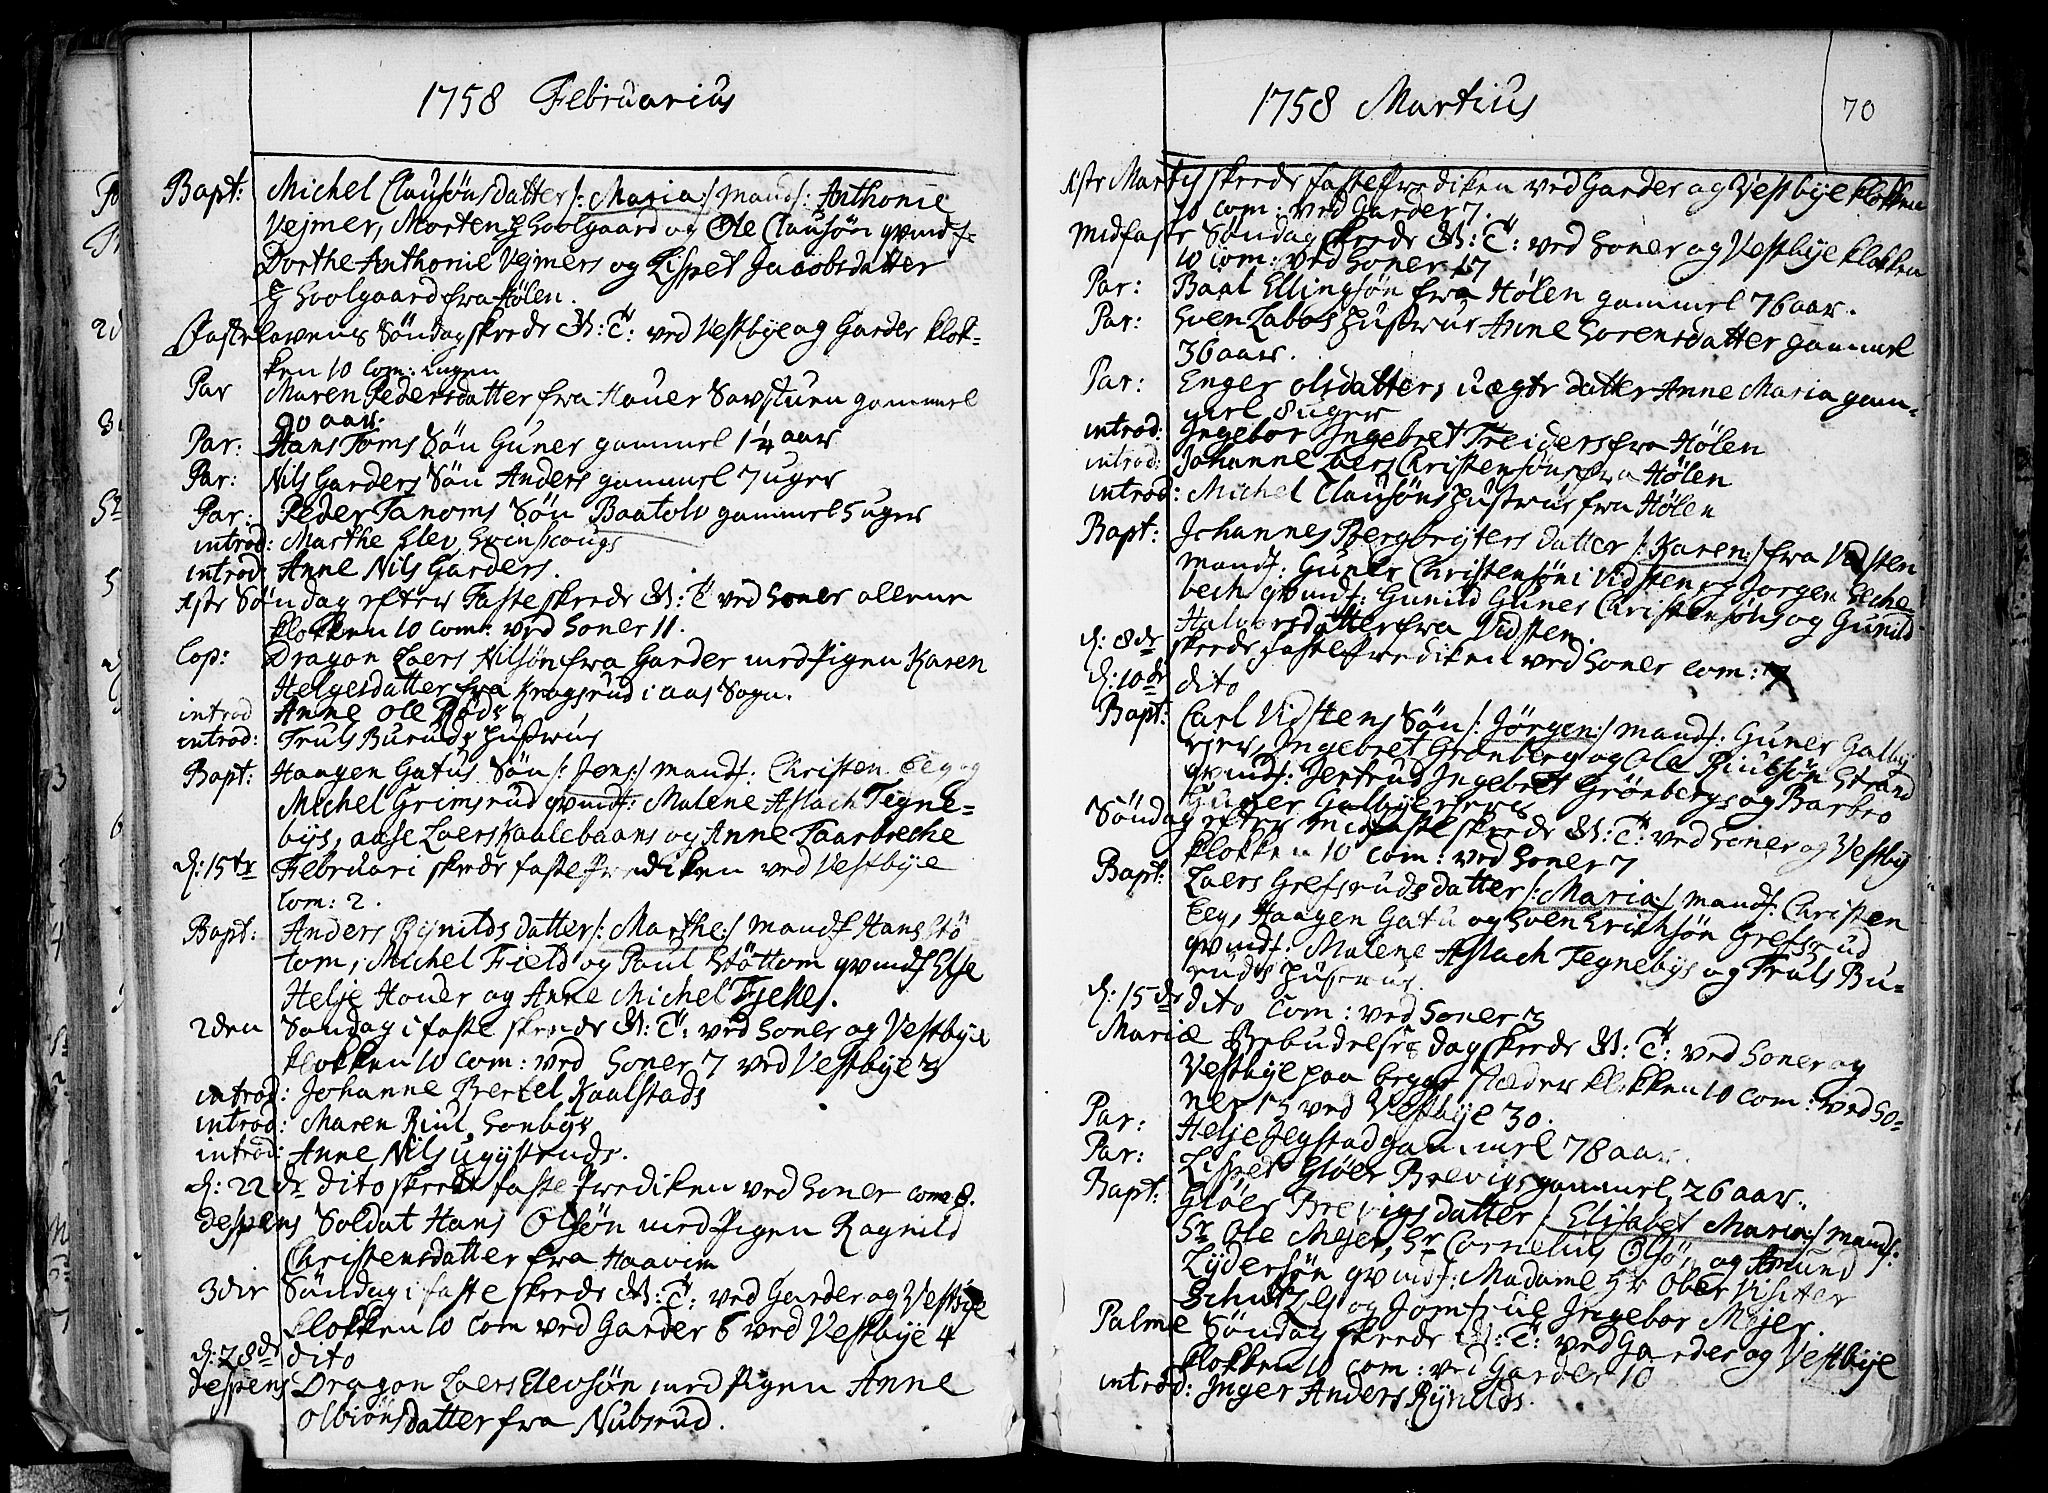 1758 Februarius
Bapt: Michel Clausøns datter /: Maria :/ mands: Anthonie
Vejmer, Morten Hoolgaard og Ole Clausøn qvindf:
Dorthe Anthonie Vejmers og Lispet Jacobsdatter
Hoolgaard fra Hølen.
Fastelavens Søndag skeede G: T: ved Vestbye og Garder klok-
ken 10 Com: ingen
Par Maren Pedersdatter fra Hauer Savstuen gammel
90 aar.
Par: Hans Toms Søn Guner gammel 1¼ aar
Par: Nils Garders Søn Anders gammel 7 uger
Par: Peder Tanoms Søn Baatolv gammel 5 uger
introd: Marthe Elev Svinscougs
introd: Anne Nils Garders.
1ste Søndag efter Faste skeede G: T: ved Soner allene
klokken 10 Com: ved Soner 11.
Cop: Dragon Laers Nilsøn fra Garder med Pigen Karen
Helgesdatter fra Kragsrud i Aas Sogn.
introd Anne Ole Røds
introd: Truls Buruds hustrue
Bapt: Haagen Gatus Søn /: Jens :/ mandf: Christen Eeg og
Michel Grimsrud qvindf: Malene Aslach Tegne-
bys, Aase Laers Kaalebaans og Anne Taarbeche
d: 15te Februari skeede faste Prediken ved Vestbye
Com: 2.
Bapt: Anders Rynilds datter /: Marthe :/ mandf Hans Stø
tom, Michel Field og Paul Støttom qvindf Else
Helje Houer og Anne Michel Fjelles.
2den Søndag i faste skeede G: T: ved Soner og Vestbye
klokken 10 Com: ved Soner 7 ved Vestbye 3
introd: Johanne Bertel Kaalstads
introd: Maren Riul Sonbys
introd: Anne Nils ugystruds.
d: 22de dito skeede faste Prediken ved Soner Com: 8.
despens Soldat Hans Olsøn med Pigen Ragnild
Christensdatter fra Haavim
3die Søndag i faste skeede G: T: ved Garder og Vestbye
klokken 10 Com ved Garder 6 ved Vestbye 4
d: 28de dito
despens Dragon Laers Elevsøn med Pigen Anne
Olbiønsdatter fra Nubsrud.
1758 Martius
70
1ste Martij skeede fastePrediken ved Garder og Vestbye klokken
10 Com: ved Garder 7.
Midfaste Søndag skeede G: T: ved Soner og Vestbye klokken
10 Com: ved Soner 17
Par: Baal Ellingsøn fra Hølen gammel 76 aar.
Par: Sven Labos hustrue Anne Sorensdatter gammel
36 aar.
Par: Enger Olsdatters uægte datter Anne Maria gam-
mel 8 uger
introd: Ingebor Ingebret Treiders fra Hølen
introd: Johanne Laers Christensøns fra Hølen
introd: Michel Clausøns hustrue fra Hølen
Bapt: Johannes Bergbryters datter /: Karen :/ fra Vidsten
mandf: Guner Christensøn i Vidsten og Jorgen Eche-
bech qvindf: Gunild Guner Christensøns og Gunild
Halvorsdatter fra Vidsten.
d: 8de skeede fastePrediken ved Soner Com: 7
d: 10de dito
Bapt: Carl Vidstens Søn /: Jørgen :/ mandf: Guner Galby
eier, Ingebret Grønberg og Ole Riulsøn Strand
qvindf: Jertrud Ingebret Grønbergs og Barbro
Guner Galbyeiers
Søndag efter Midfaste skeede G: T: ved Soner og Vestby
klokken 10 Com: ved Soner 7
Bapt: Laers Grefsruds datter /: Maria :/ mandf: Christen
Eeg, Haagen Gatu og Sven Erichsøn Grefsrud
qvindf: Malene Aslach Tegnebys og Truls Bu-
ruds hustrue.
d: 15de dito Com: ved Soner 3
Mariæ Bebudelses dag skeede G: T: ved Soner og
Vestbye paa begge stæder klokken 10 Com: ved So-
ner 15 ved Vestbye 30.
Par: Helje Jegstad gammel 78 aar.
Par: Lispet Gløer Brevigs gammel 26 aar.
Bapt: Gløer Brevigs datter /: Elisabet Maria :/ mands:
Sr Ole Mejer, Sr Cornelius Olsøn og Amund
Lydersøn qvindf: Madame Sr Ober Visiter
Schultz og Jomfrue Ingebor Mejer.
Palme Søndag skeede G: T: ved Garder og Vestbye
klokken 10 Com: ved Garder 10
introd: Inger Anders Rynilds.